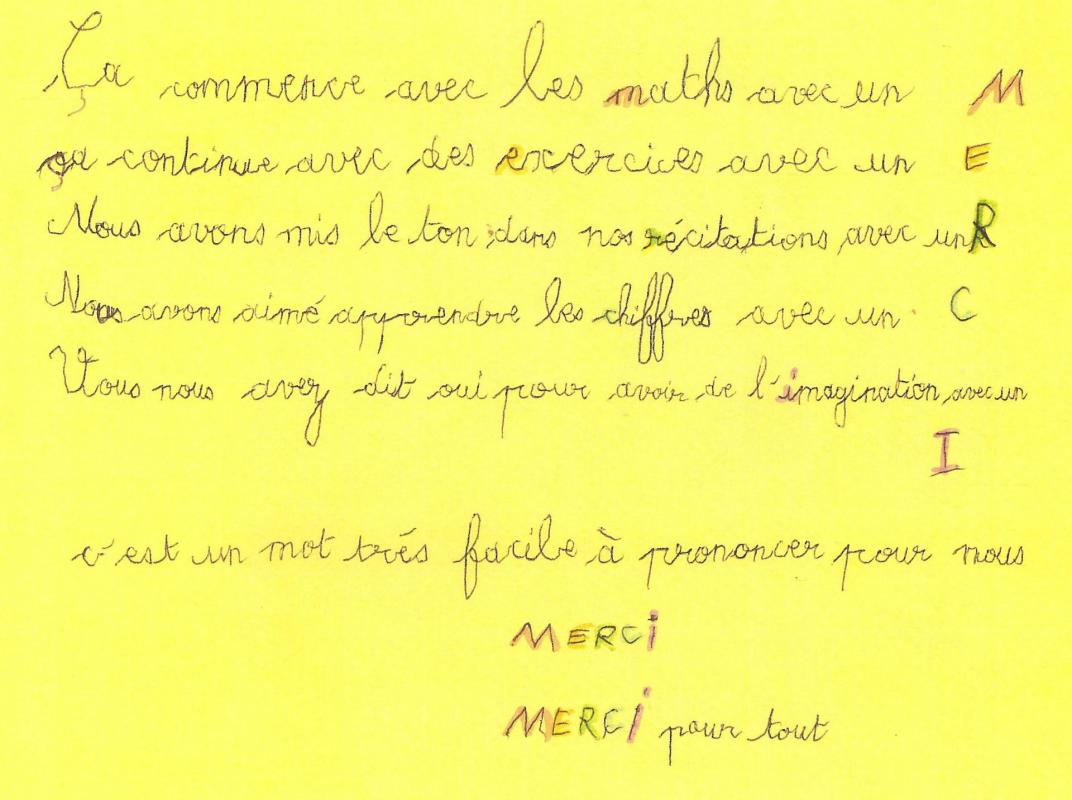 Ça commence avec les maths avec un M
ça continue avec des exercices avec un E
Nous avons mis le ton dans nos récitations avec un R
Nous avons aimé apprendre les chiffres avec un C
Vous nous avez dit oui pour avoir de l'imagination avec un
I
c'est un mot trés facile à prononcer pour nous
MERCi
MERCi pour tout